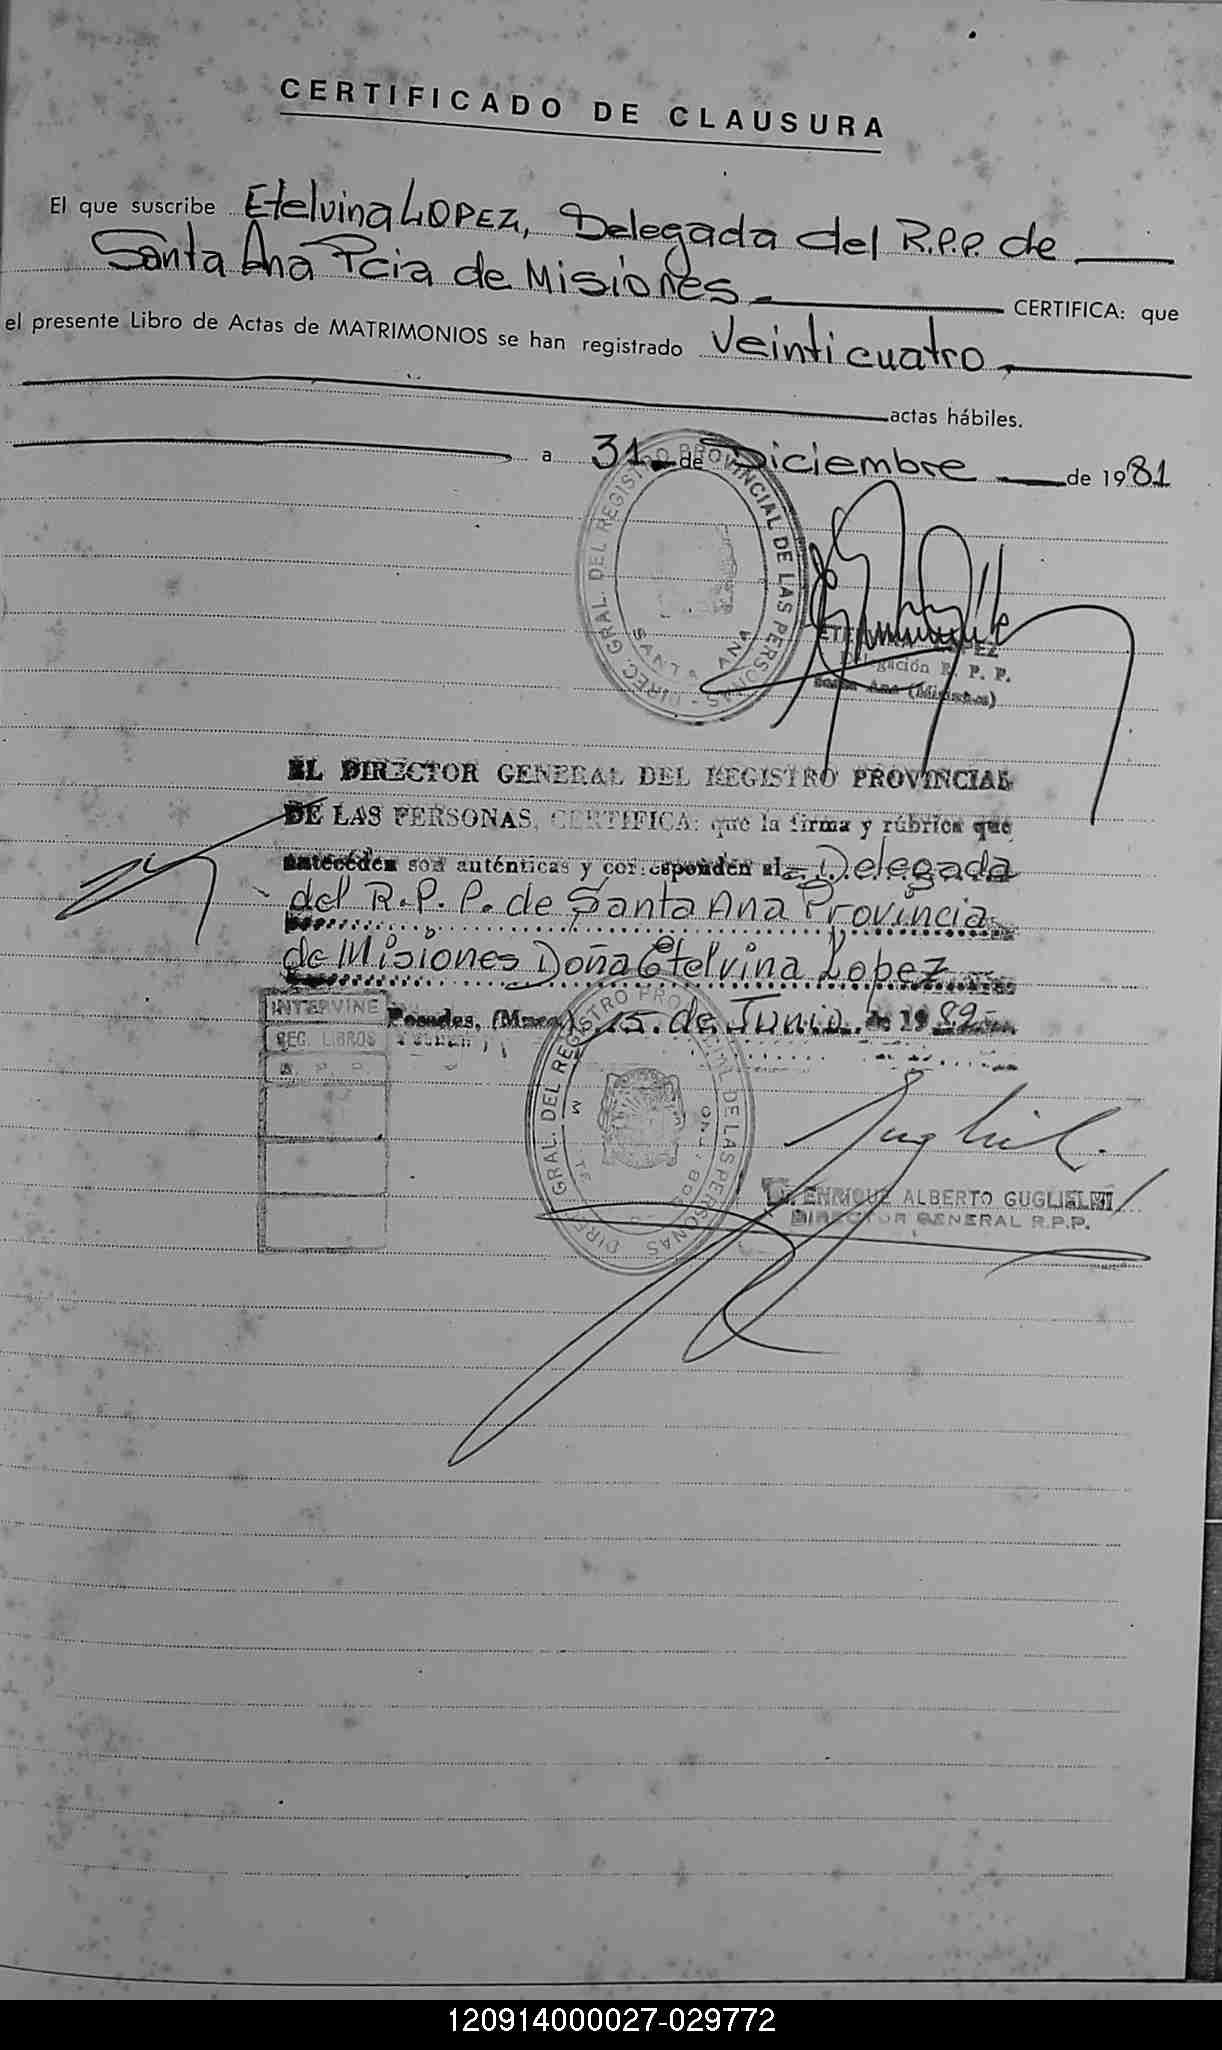 CERTIFICADO DE CLAUSURA
El que suscribe Etelvina LOPEZ, Delegada del R.P.P. de
Santa Ana Pcia de Misiones CERTIFICA: que
el presente Libro de Actas de MATRIMONIOS se han registrado Veinticuatro
actas hábiles.
a 31 de Diciembre de 1981
DIREC. GRAL. DEL REGISTRO PROVINCIAL DE LAS PERSONAS
SANTA ANA
LOPEZ
Delegación R. P. P.
Santa Ana (Misiones)
EL DIRECTOR GENERAL DEL REGISTRO PROVINCIAL
DE LAS PERSONAS, CERTIFICA: que la firma y rúbrica que
anteceden son auténticas y corresponden al Delegada
del R.P.P. de Santa Ana Provincia
de Misiones Doña Etelvina Lopez
INTERVINE
REG. LIBROS
Posadas, 15 de Junio de 1982
DIREC. GRAL. DEL REGISTRO PROVINCIAL DE LAS PERSONAS
ENRIQUE ALBERTO GUGLIELMI
DIRECTOR GENERAL R.P.P.
120914000027-029772